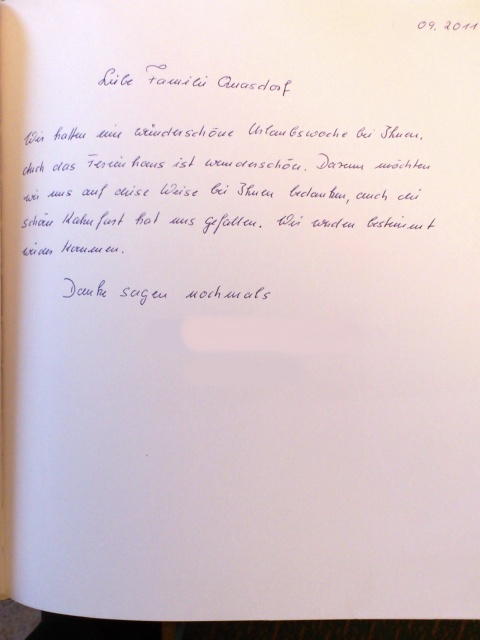 09. 2011
Liebe Familie Quasdorf
Wir hatten eine wünderschöne Urlaubswoche bei Ihnen.
Auch das Ferienhaus ist wunderschön. Darum möchten
wir uns auf diese Weise bei Ihnen bedanken, auch die
schöne Kahnfart hat uns gefallen. Wir werden bestimmt
wieder kommen.
Danke sagen nochmals